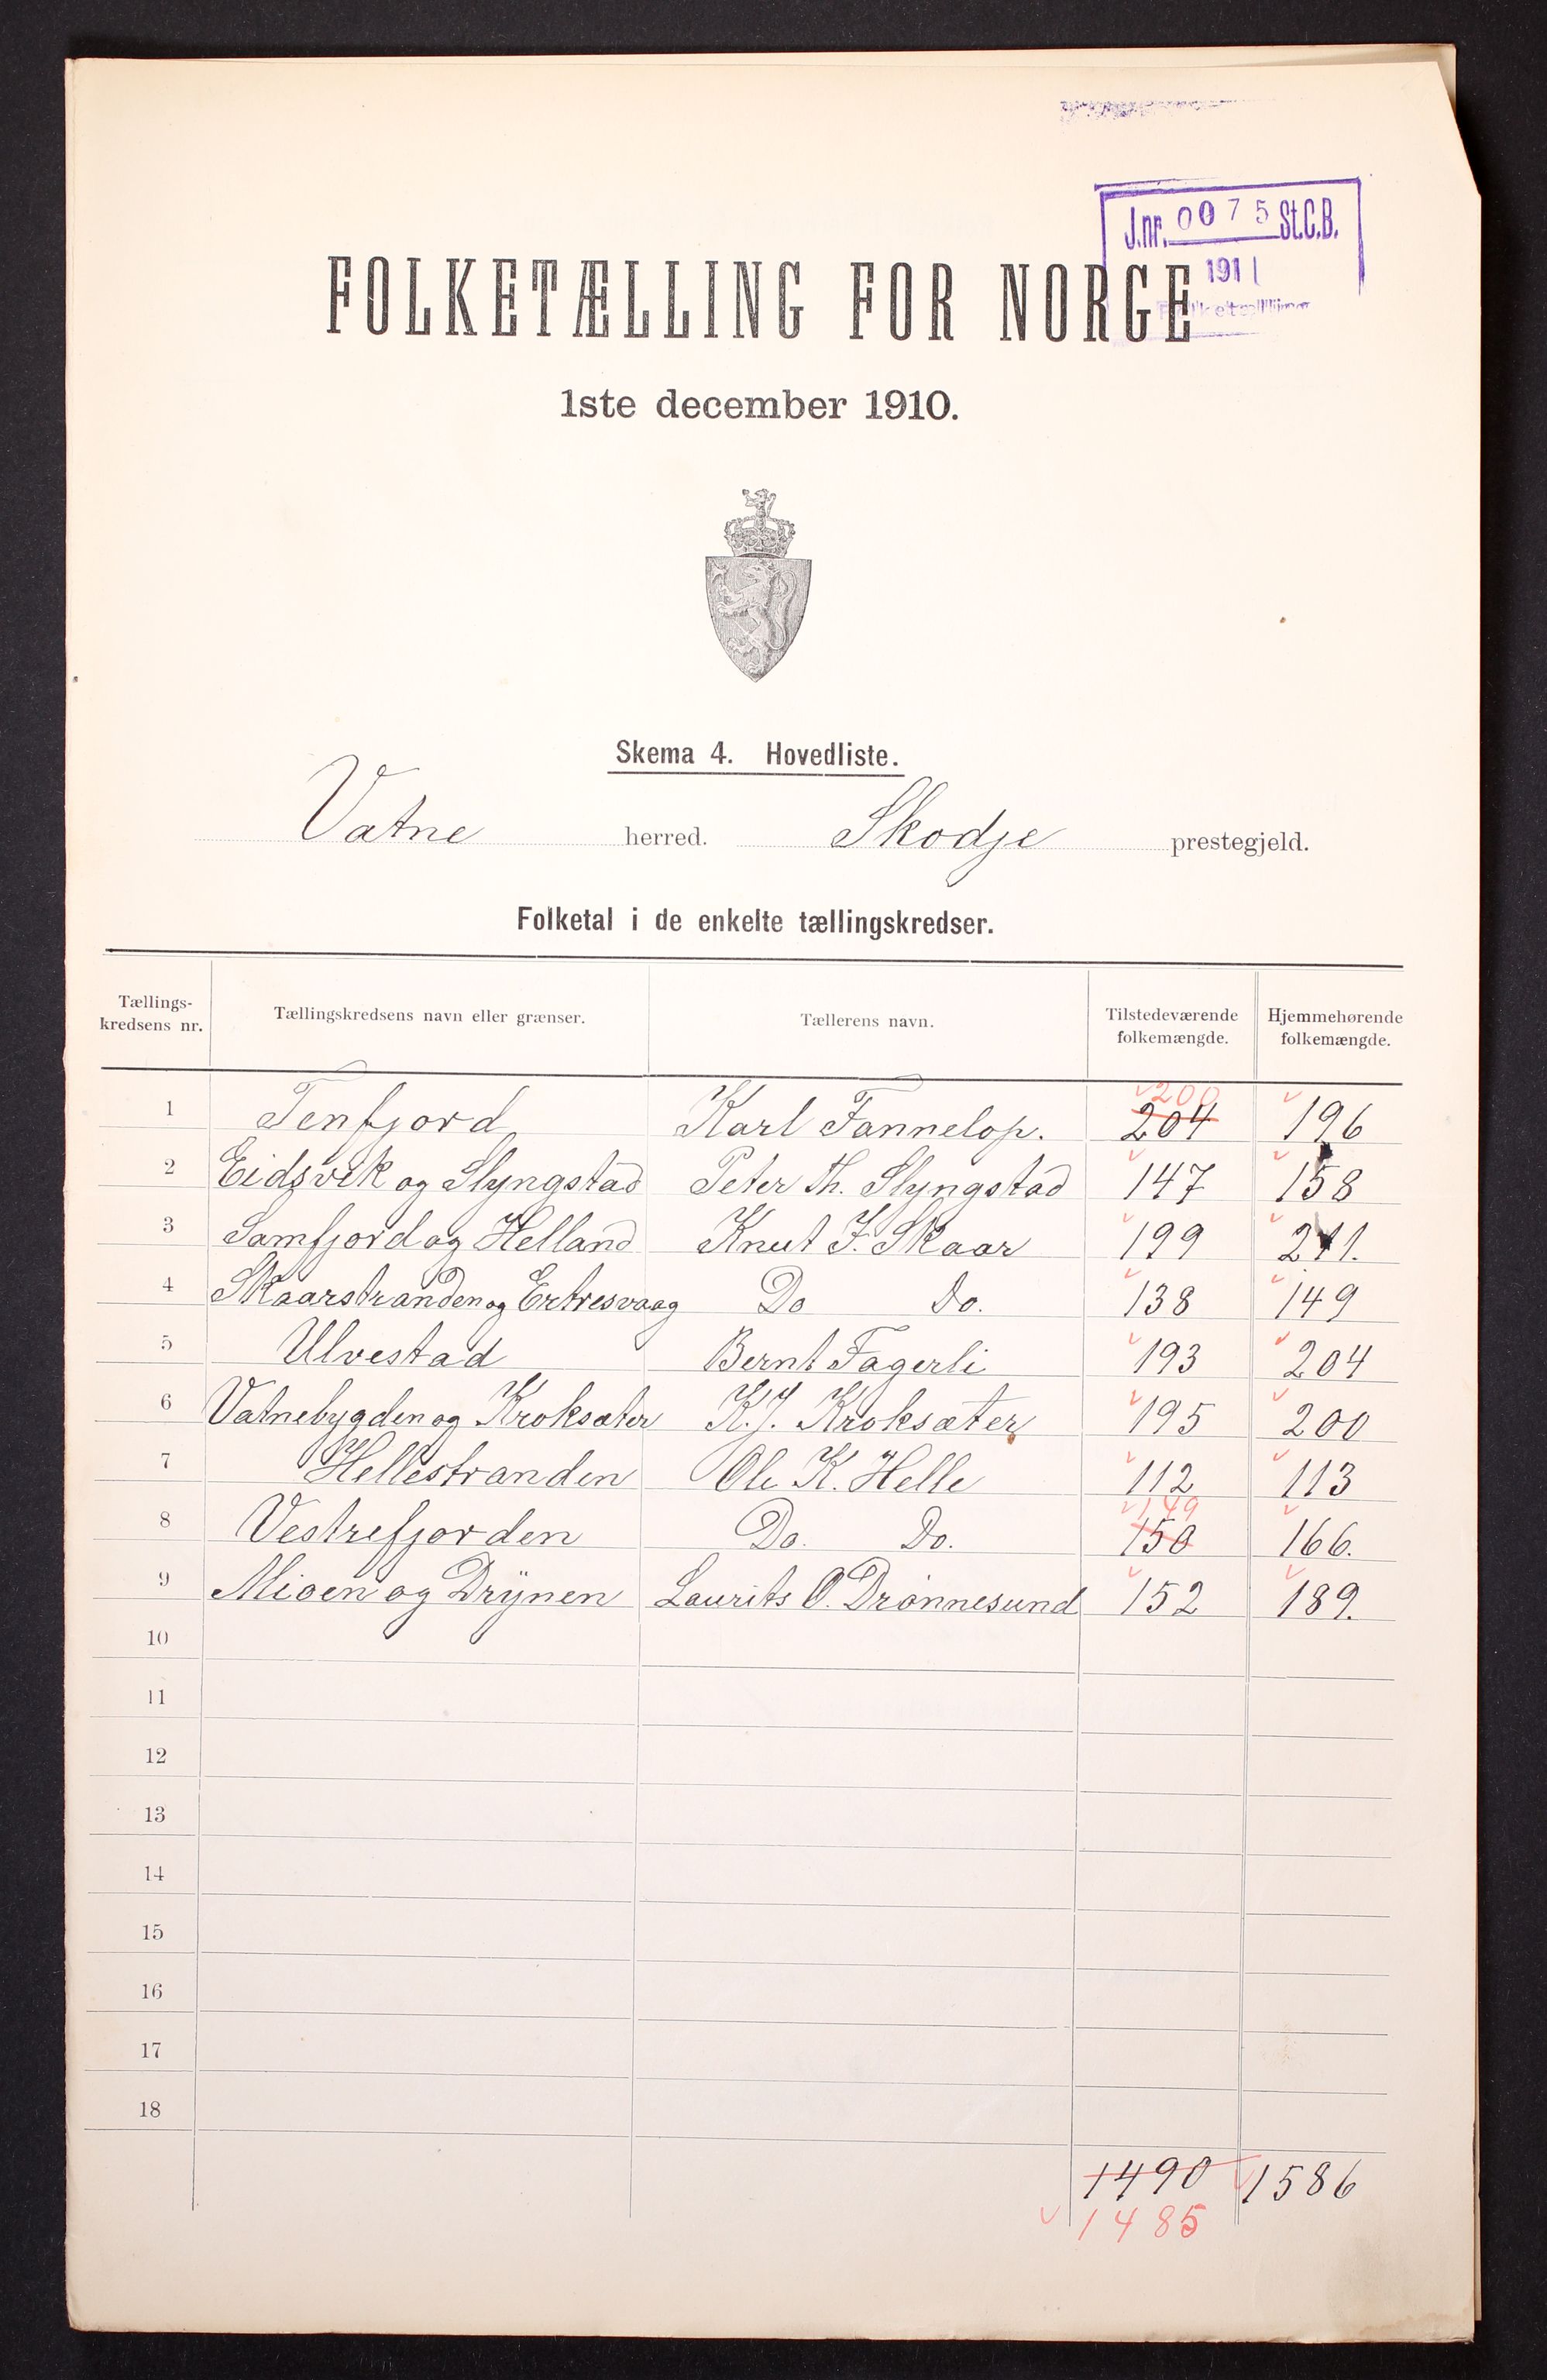 J.nr. 0075 St.C.B.
1911
Folketælling
FOLKETÆLLING FOR NORGE
1ste december 1910.
Skema 4. Hovedliste.
Vatne herred. Skodje prestegjeld.
Folketal i de enkelte tællingskredser.
Tællings-kredsens nr. Tællingskredsens navn eller grænser. Tællerens navn. Tilstedeværende folkemængde. Hjemmehørende folkemængde.
200
1 Tenfjord Karl Fannelop. 204 196
2 Eidsvik og Slyngstad Peter Th. Slyngstad 147 158
3 Samfjord og Helland Knut J. Skaar 199 211.
4 Skaarstranden og Ertresvaag Do Do. 138 149
5 Ulvestad Bernt Fagerli 193 204
6 Vatnebygden og Kroksæter K. J. Kroksæter 195 200
7 Hellestranden Ole K. Helle 112 113
149
8 Vestrefjorden Do. Do. 150 166.
9 Mioen og Drynen Laurits O. Drønnesund 152 189.
10
11
12
13
14
15
16
17
18
1490 1586
1485